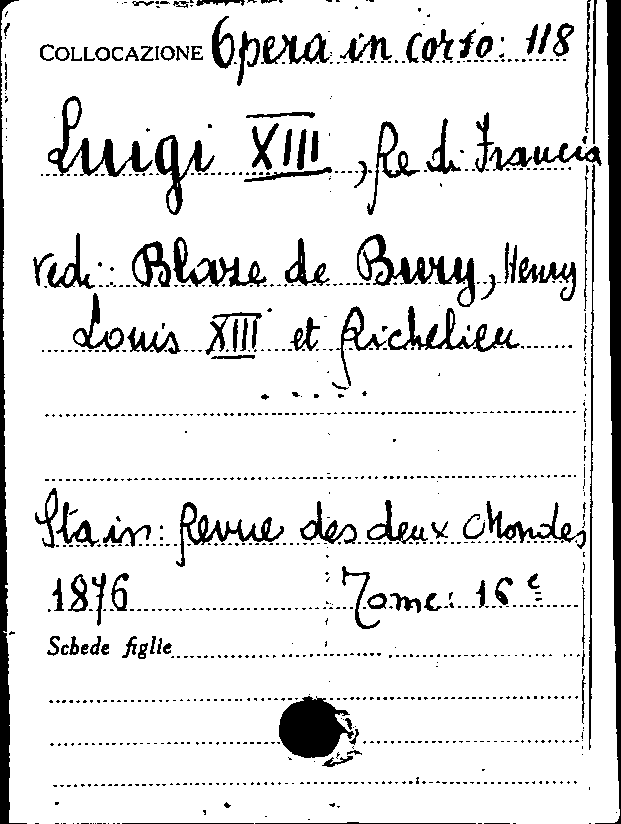 COLLOCAZIONE Opera in corso: 118
Luigi XIII, Re di Francia
vedi: Blaze de Bury, Henry
Louis XIII et Richelieu
.....
Sta in: Revue des deux Mondes
1876 Tome: 16e
Schede figlie